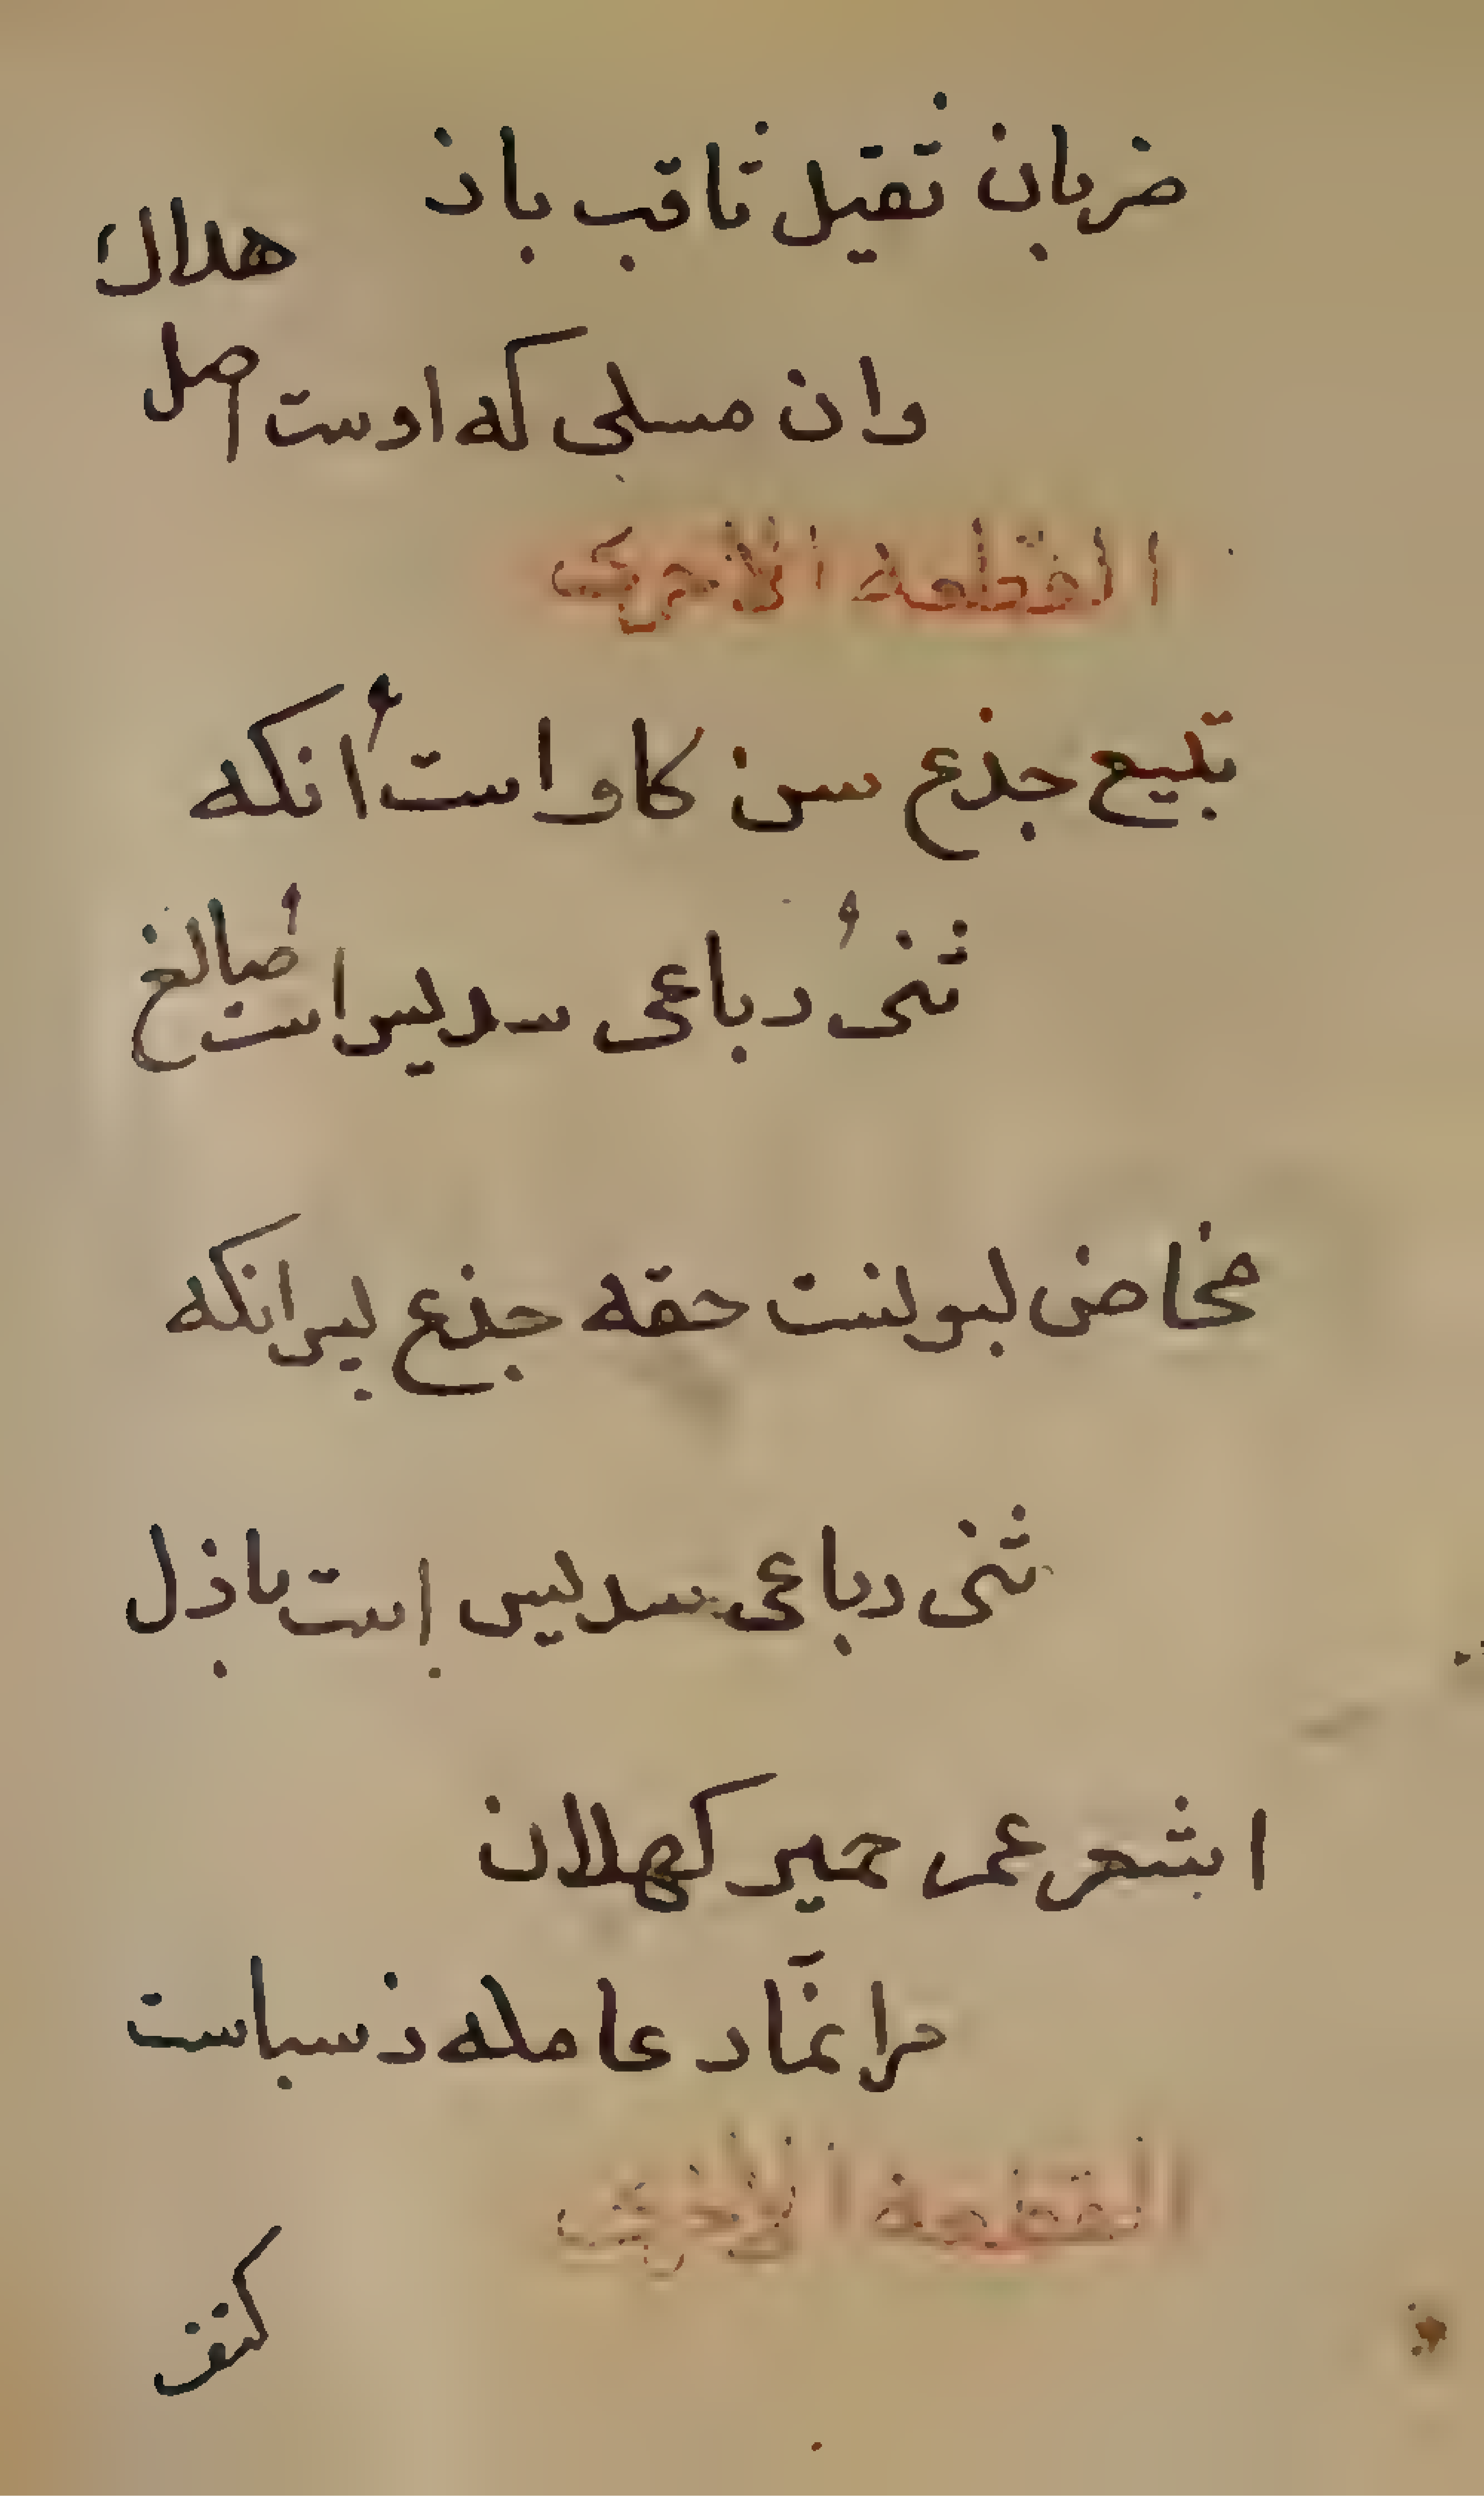 ضربان ثقیل ثاقب باذ هلال
وان مسلی که اوست اصل
القطعة الاخرى
تبیع جذع سن کاو است أنکه
ثنی رباعی سدیس است ضالغ
مخاض لبونست حقه جذع لیر انکه
ثنی رباعی سدیس است باذل
اشعر عمر حمیر کهلان
مرانمّار عامله ز سباست
القطعة الاخرى
کتف